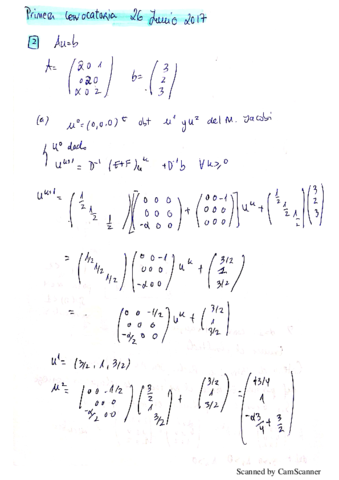 Primera Convocatoria 26 Junio 2017
2 Au=b
A= (2 0 1 / 0 2 0 / α 0 2) b= (3 / 2 / 3)
(a) u⁰=(0,0,0)ᵗ obt u¹ y u² del M. Jacobi
{ u⁰ dado
u^(k+1) = D⁻¹ (E+F) u^k + D⁻¹b ∀k≥0
u^(k+1) = (1/2 1/2 1/2) [(0 0 0 / 0 0 0 / -α 0 0) + (0 0 -1 / 0 0 0 / 0 0 0)] u^k + (1/2 1/2 1/2) (3 / 2 / 3)
= (1/2 1/2 1/2) (0 0 -1 / 0 0 0 / -α 0 0) u^k + (3/2 / 1 / 3/2)
= (0 0 -1/2 / 0 0 0 / -α/2 0 0) u^k + (3/2 / 1 / 3/2)
u¹ = (3/2, 1, 3/2)
u² = (0 0 -1/2 / 0 0 0 / -α/2 0 0) (3/2 / 1 / 3/2) + (3/2 / 1 / 3/2) = (+3/4 / 1 / -α3/4 + 3/2)
Scanned by CamScanner